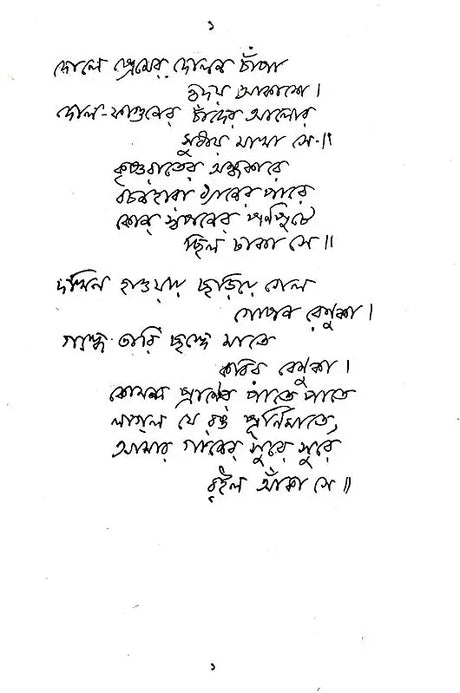 ১
দোলে প্রেমের দোলন চাঁপা
হৃদয় আকাশে।
দোল-ফাগুনের চাঁদের আলোর
সুধায় মাখা সে॥
কৃষ্ণরাতের অন্ধকারে
বচনহারা ধ্যানের পারে
কোন্ স্বপনের পর্ণপুটে
ছিল ঢাকা সে॥
দখিন হাওয়ায় ছড়িয়ে গেল
গোপন রেণুকা।
গন্ধে তারি ছন্দে মাতে
কবির বেণুকা।
কোমল প্রাণের পাতে পাতে
লাগল যে রঙ পূর্ণিমাতে,
আমার গানের সুরে সুরে
রইল আঁকা সে॥
১